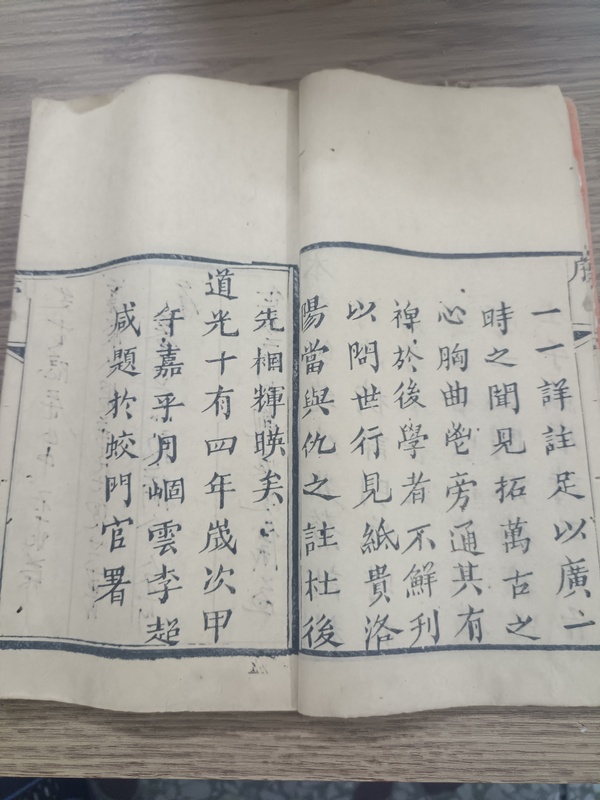 序
一一詳註足以廣一
時之聞見拓萬古之
心胸曲鬯旁通其有
裨於後學者不鮮刊
以問世行見紙貴洛
陽當與仇之註杜後
先相輝暎矣
道光十有四年歲次甲
午嘉平月崓雲李超
咸題於蛟門官署